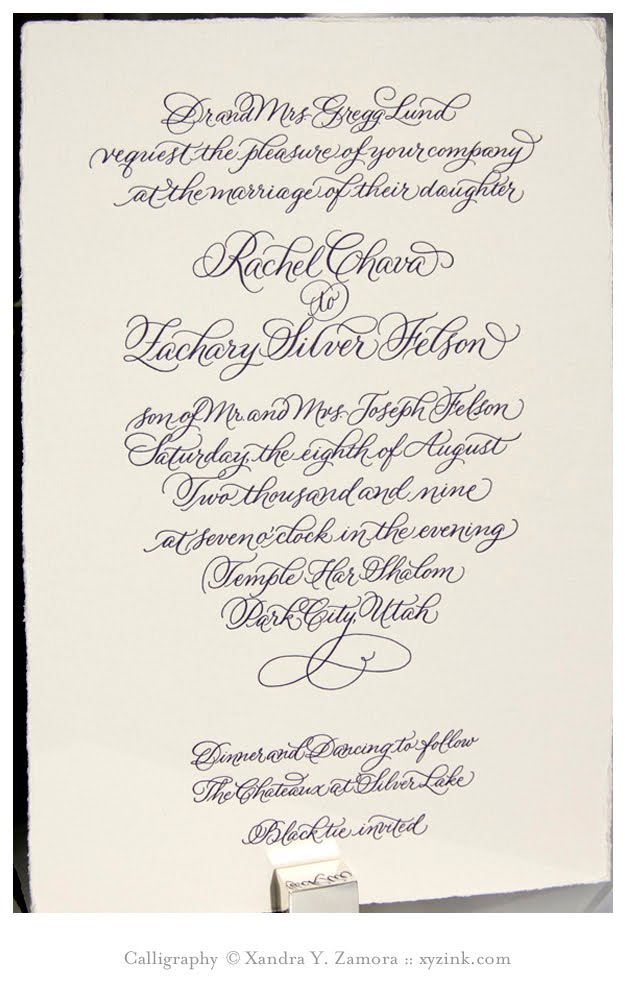 Dr and Mrs. Gregg Lund
request the pleasure of your company
at the marriage of their daughter
Rachel Chava
to
Zachary Silver Felson
son of Mr. and Mrs. Joseph Felson
Saturday, the eighth of August
Two thousand and nine
at seven o'clock in the evening
Temple Har Shalom
Park City, Utah
Dinner and Dancing to follow
The Chateaux at Silver Lake
Black tie invited
Calligraphy © Xandra Y. Zamora :: xyzink.com